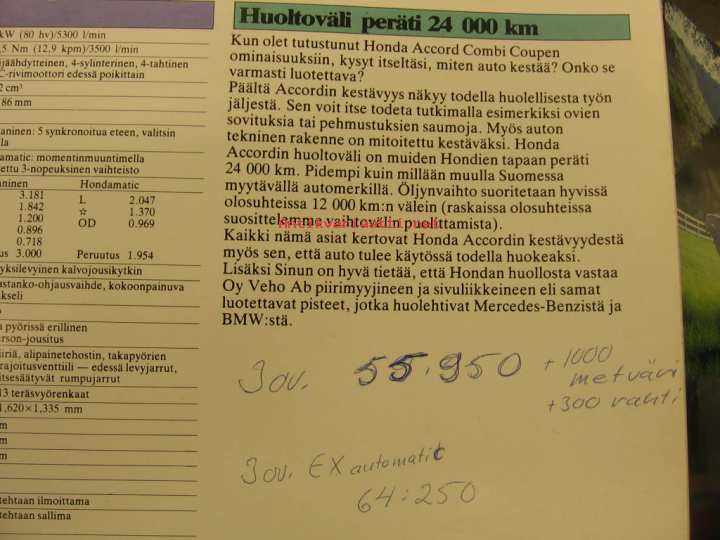 kW (80 hv)/5300 l/min
,5 Nm (12,9 kpm)/3500 l/min
ijäähdytteinen, 4-sylinterinen, 4-tahtinen
C-rivimoottori edessä poikittain
2 cm³
86 mm
aninen: 5 synkronoitua eteen, valitsin
lla
amatic: momentinmuuntimella
ettu 3-nopeuksinen vaihteisto
aninen Hondamatic
3.181 L 2.047
1.842 ☆ 1.370
1.200 OD 0.969
0.896
0.718
us 3.000 Peruutus 1.954
yksilevyinen kalvojousikytkin
astanko-ohjausvaihde, kokoonpainuva
kseli
a pyörissä erillinen
erson-jousitus
iiriä, alipainetehostin, takapyörien
rajoitusventtiili — edessä levyjarrut,
itsesäätyvät rumpujarrut
13 teräsvyörenkaat
1,620×1,335 mm
m
m
m
tehtaan ilmoittama
tehtaan sallima
Huoltoväli peräti 24 000 km
Kun olet tutustunut Honda Accord Combi Coupen
ominaisuuksiin, kysyt itseltäsi, miten auto kestää? Onko se
varmasti luotettava?
Päältä Accordin kestävyys näkyy todella huolellisesta työn
jäljestä. Sen voit itse todeta tutkimalla esimerkiksi ovien
sovituksia tai pehmustuksien saumoja. Myös auton
tekninen rakenne on mitoitettu kestäväksi. Honda
Accordin huoltoväli on muiden Hondien tapaan peräti
24 000 km. Pidempi kuin millään muulla Suomessa
myytävällä automerkillä. Öljynvaihto suoritetaan hyvissä
olosuhteissa 12 000 km:n välein (raskaissa olosuhteissa
suosittelemme vaihtovälin puolittamista).
Kaikki nämä asiat kertovat Honda Accordin kestävyydestä
myös sen, että auto tulee käytössä todella huokeaksi.
Lisäksi Sinun on hyvä tietää, että Hondan huollosta vastaa
Oy Veho Ab piirimyyjineen ja sivuliikkeineen eli samat
luotettavat pisteet, jotka huolehtivat Mercedes-Benzistä ja
BMW:stä.
3 ov. 55.950 + 1000
metväri
+300 rahti
3 ov. EX automatic
64:250